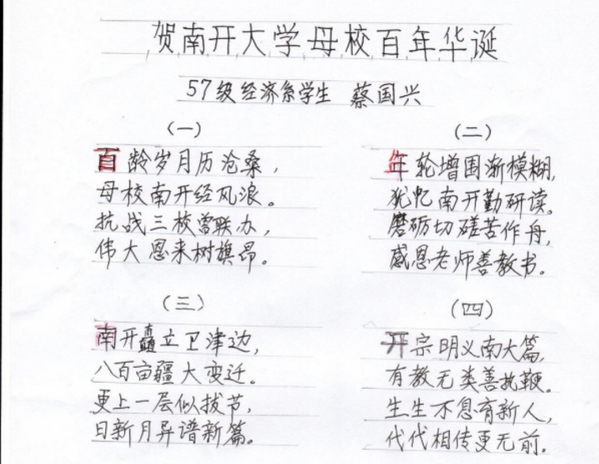 贺南开大学母校百年华诞
57级经济系学生 蔡国兴
(一)
百龄岁月历沧桑,
母校南开经风浪。
抗战三校曾联办,
伟大恩来树旗昂。
(二)
年轮增国渐模糊,
犹忆南开勤研读。
磨砺切磋苦作舟,
感恩老师善教书。
(三)
南开矗立卫津边,
八百亩疆大变迁。
更上一层似拔节,
日新月异谱新篇。
(四)
开宗明义南大篇,
有教无类善执鞭。
生生不息有新人,
代代相传更无前.